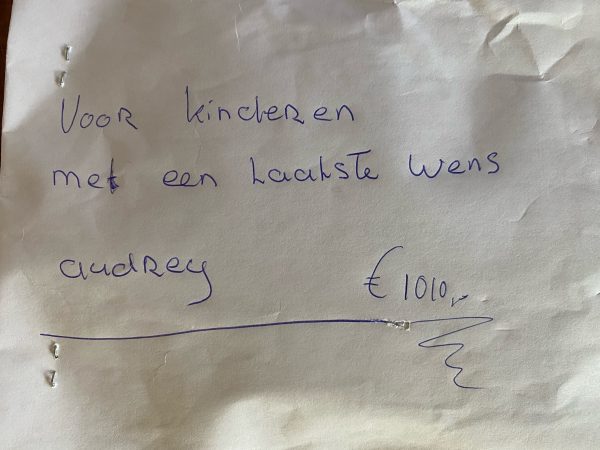 Voor kinderen
met een laatste wens
audrey € 1010,-